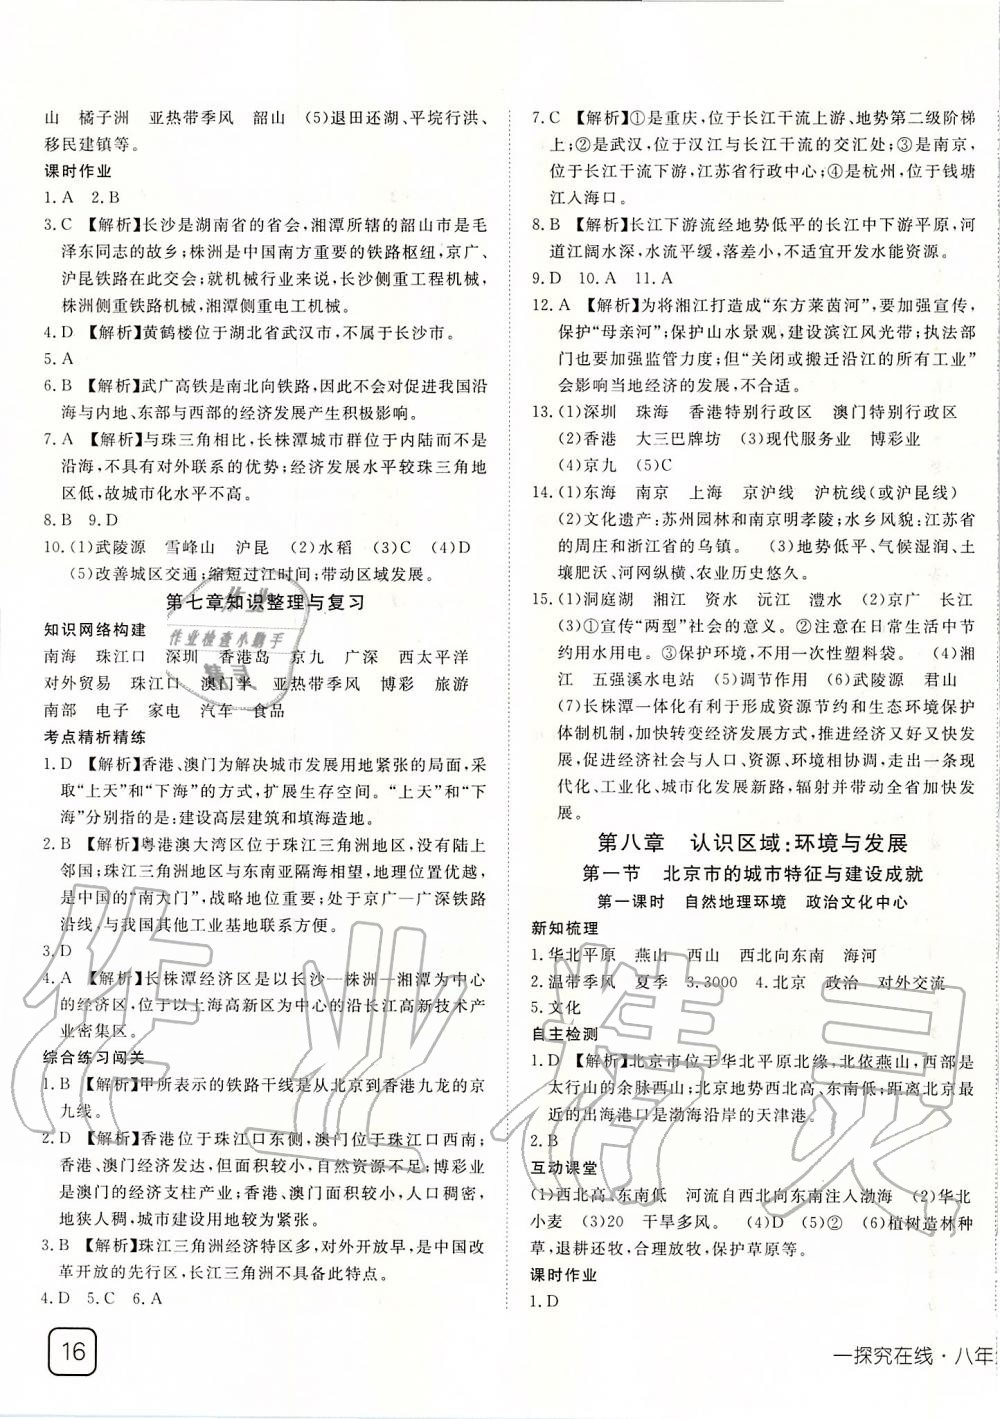 山　橘子洲　亚热带季风　韶山　(5)退田还湖、平垸行洪、
移民建镇等。
课时作业
1. A　2. B
3. C　【解析】长沙是湖南省的省会,湘潭所辖的韶山市是毛
泽东同志的故乡;株洲是中国南方重要的铁路枢纽,京广、
沪昆铁路在此交会;就机械行业来说,长沙侧重工程机械,
株洲侧重铁路机械,湘潭侧重电工机械。
4. D　【解析】黄鹤楼位于湖北省武汉市,不属于长沙市。
5. A
6. B　【解析】武广高铁是南北向铁路,因此不会对促进我国沿
海与内地、东部与西部的经济发展产生积极影响。
7. A　【解析】与珠三角相比,长株潭城市群位于内陆而不是
沿海,不具有对外联系的优势;经济发展水平较珠三角地
区低,故城市化水平不高。
8. B　9. D
10. (1)武陵源　雪峰山　沪昆　(2)水稻　(3)C　(4)D
(5)改善城区交通;缩短过江时间;带动区域发展。
第七章知识整理与复习
知识网络构建
南海　珠江口　深圳　香港岛　京九　广深　西太平洋
对外贸易　珠江口　澳门半　亚热带季风　博彩　旅游
南部　电子　家电　汽车　食品
考点精析精练
1. D　【解析】香港、澳门为解决城市发展用地紧张的局面,采
取“上天”和“下海”的方式,扩展生存空间。“上天”和“下
海”分别指的是:建设高层建筑和填海造地。
2. D　【解析】粤港澳大湾区位于珠江三角洲,没有陆上
邻国;珠江三角洲与东南亚隔海相望,珠江三角洲地区
是中国的“南大门”,战略位置重要;处于京广—广深铁路
沿线,与我国其他工业基地联系方便。
3. D
4. A　【解析】长株潭经济区是以长沙—株洲—湘潭为中心
的经济区,位于以上海高新区为中心的沿长江高新技术产
业密集区。
综合练习闯关
1. B　【解析】甲所表示的铁路干线是从北京到香港九龙的京
九线。
2. D　【解析】香港位于珠江口东侧,澳门位于珠江口西南;
香港、澳门经济发达,但面积较小,自然资源不足;博彩业
是澳门的经济支柱产业;香港、澳门面积较小,人口稠密,
地狭人稠,城市建设用地较为紧张。
3. B　【解析】珠江三角洲经济特区多,对外开放早,是中国改
革开放的先行区,长江三角洲不具备此特点。
4. D　5. C　6. A
16
7. C　【解析】①是重庆,位于长江干流上游、地势第二级阶梯
上;②是武汉,位于汉江与长江干流的交汇处;③是南京,
位于长江干流下游,江苏省行政中心;④是杭州,位于钱塘
江入海口。
8. B　【解析】长江下游流经地势低平的长江中下游平原,河
道江阔水深,水流平缓,落差小,不适宜开发水能资源。
9. D　10. A　11. A
12. A　【解析】为将湘江打造成“东方莱茵河”,要加强宣传,
保护“母亲河”;保护山水景观,建设滨江风光带;执法部
门也要加强监管力度;但“关闭或搬迁沿江的所有工业”
会影响当地经济的发展,不合适。
13. (1)深圳　珠海　香港特别行政区　澳门特别行政区
(2)香港　大三巴牌坊　(3)现代服务业　博彩业
(4)京九　(5)C
14. (1)东海　南京　上海　京沪线　沪杭线(或沪昆线)
(2)文化遗产:苏州园林和南京明孝陵;水乡风貌:江苏省
的周庄和浙江省的乌镇。　(3)地势低平、气候湿润、土
壤肥沃、河网纵横、农业历史悠久。
15. (1)洞庭湖　湘江　资水　沅江　澧水　(2)京广　长江
(3)①宣传“两型”社会的意义。②注意在日常生活中节
约用水用电。③保护环境,不用一次性塑料袋。　(4)湘
江　五强溪水电站　(5)调节作用　(6)武陵源　君山
(7)长株潭一体化有利于形成资源节约和生态环境保护的
体制机制,加快转变经济发展方式,推进经济又好又快发
展,促进经济社会与人口、资源、环境相协调,走出一条现
代化、工业化、城市化发展新路,辐射并带动全省加快发
展。
第八章　认识区域:环境与发展
第一节　北京市的城市特征与建设成就
第一课时　自然地理环境　政治文化中心
新知梳理
1. 华北平原　燕山　西山　西北向东南　海河
2. 温带季风　夏季　3. 3000　4. 北京　政治　对外交流
5. 文化
自主检测
1. D　【解析】北京市位于华北平原北缘,北依燕山,西部是
太行山的余脉西山;北京地势西北高、东南低;距离北京最
近的出海港口是渤海沿岸的天津港。
2. B
互动课堂
(1)西北高、东南低　河流自西北向东南注入渤海　(2)华北
小麦　(3)20　干旱多风。　(4)D　(5)②　(6)植树造林种
草,退耕还牧,合理放牧,保护草原等。
课时作业
1. D
一探究在线·八年
作业
作业检查小助手
精灵
作业精灵